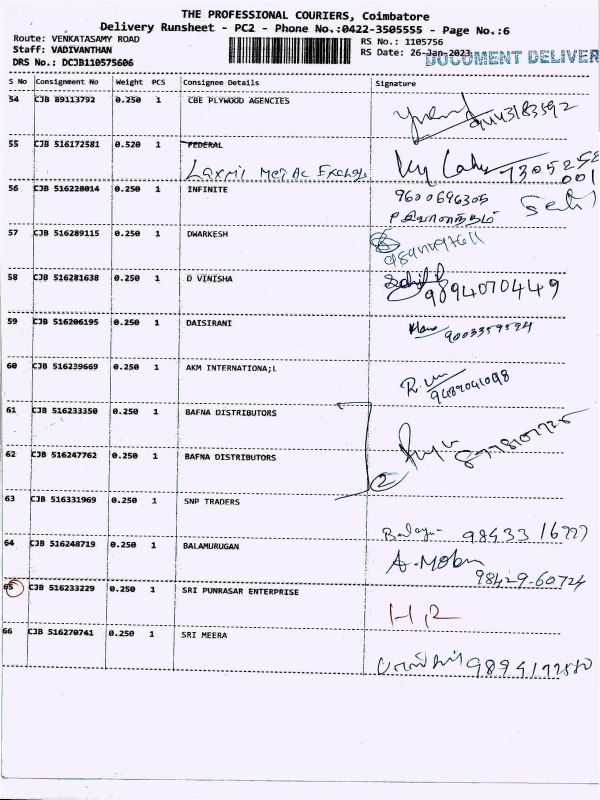 THE PROFESSIONAL COURIERS, Coimbatore
Delivery Runsheet - PC2 - Phone No.:0422-3505555 - Page No.:6
Route: VENKATASAMY ROAD
Staff: VADIVANTHAN
DRS No.: DCJB110575606
RS No.: 1105756
RS Date: 26-Jan-2023
DOCUMENT DELIVER
S No Consignment No Weight PCS Consignee Details Signature
54 CJB 89113792 0.250 1 CBE PLYWOOD AGENCIES
55 CJB 516172581 0.520 1 FEDERAL
Laxmi
56 CJB 516228014 0.250 1 INFINITE 9600696305
57 CJB 516289115 0.250 1 DWARKESH
58 CJB 516281638 0.250 1 D VINISHA 9894070449
59 CJB 516206195 0.250 1 DAISIRANI 9003359594
60 CJB 516239669 0.250 1 AKM INTERNATIONA;L
9489041098
61 CJB 516233350 0.250 1 BAFNA DISTRIBUTORS
62 CJB 516247762 0.250 1 BAFNA DISTRIBUTORS
2
63 CJB 516331969 0.250 1 SNP TRADERS
98433 16777
64 CJB 516248719 0.250 1 BALAMURUGAN A. Mohan
98429-60724
65 CJB 516233229 0.250 1 SRI PUNRASAR ENTERPRISE
66 CJB 516270741 0.250 1 SRI MEERA